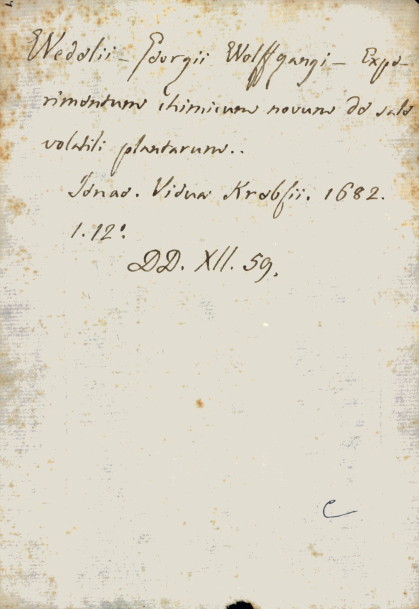 Wedelii - Georgii Wolffgangi - Expe-
rimentum chimicum novum de sale
volatili plantarum..
Jenae. Vidua Krebsii. 1682.
1. 12°.
DD. XII. 59.